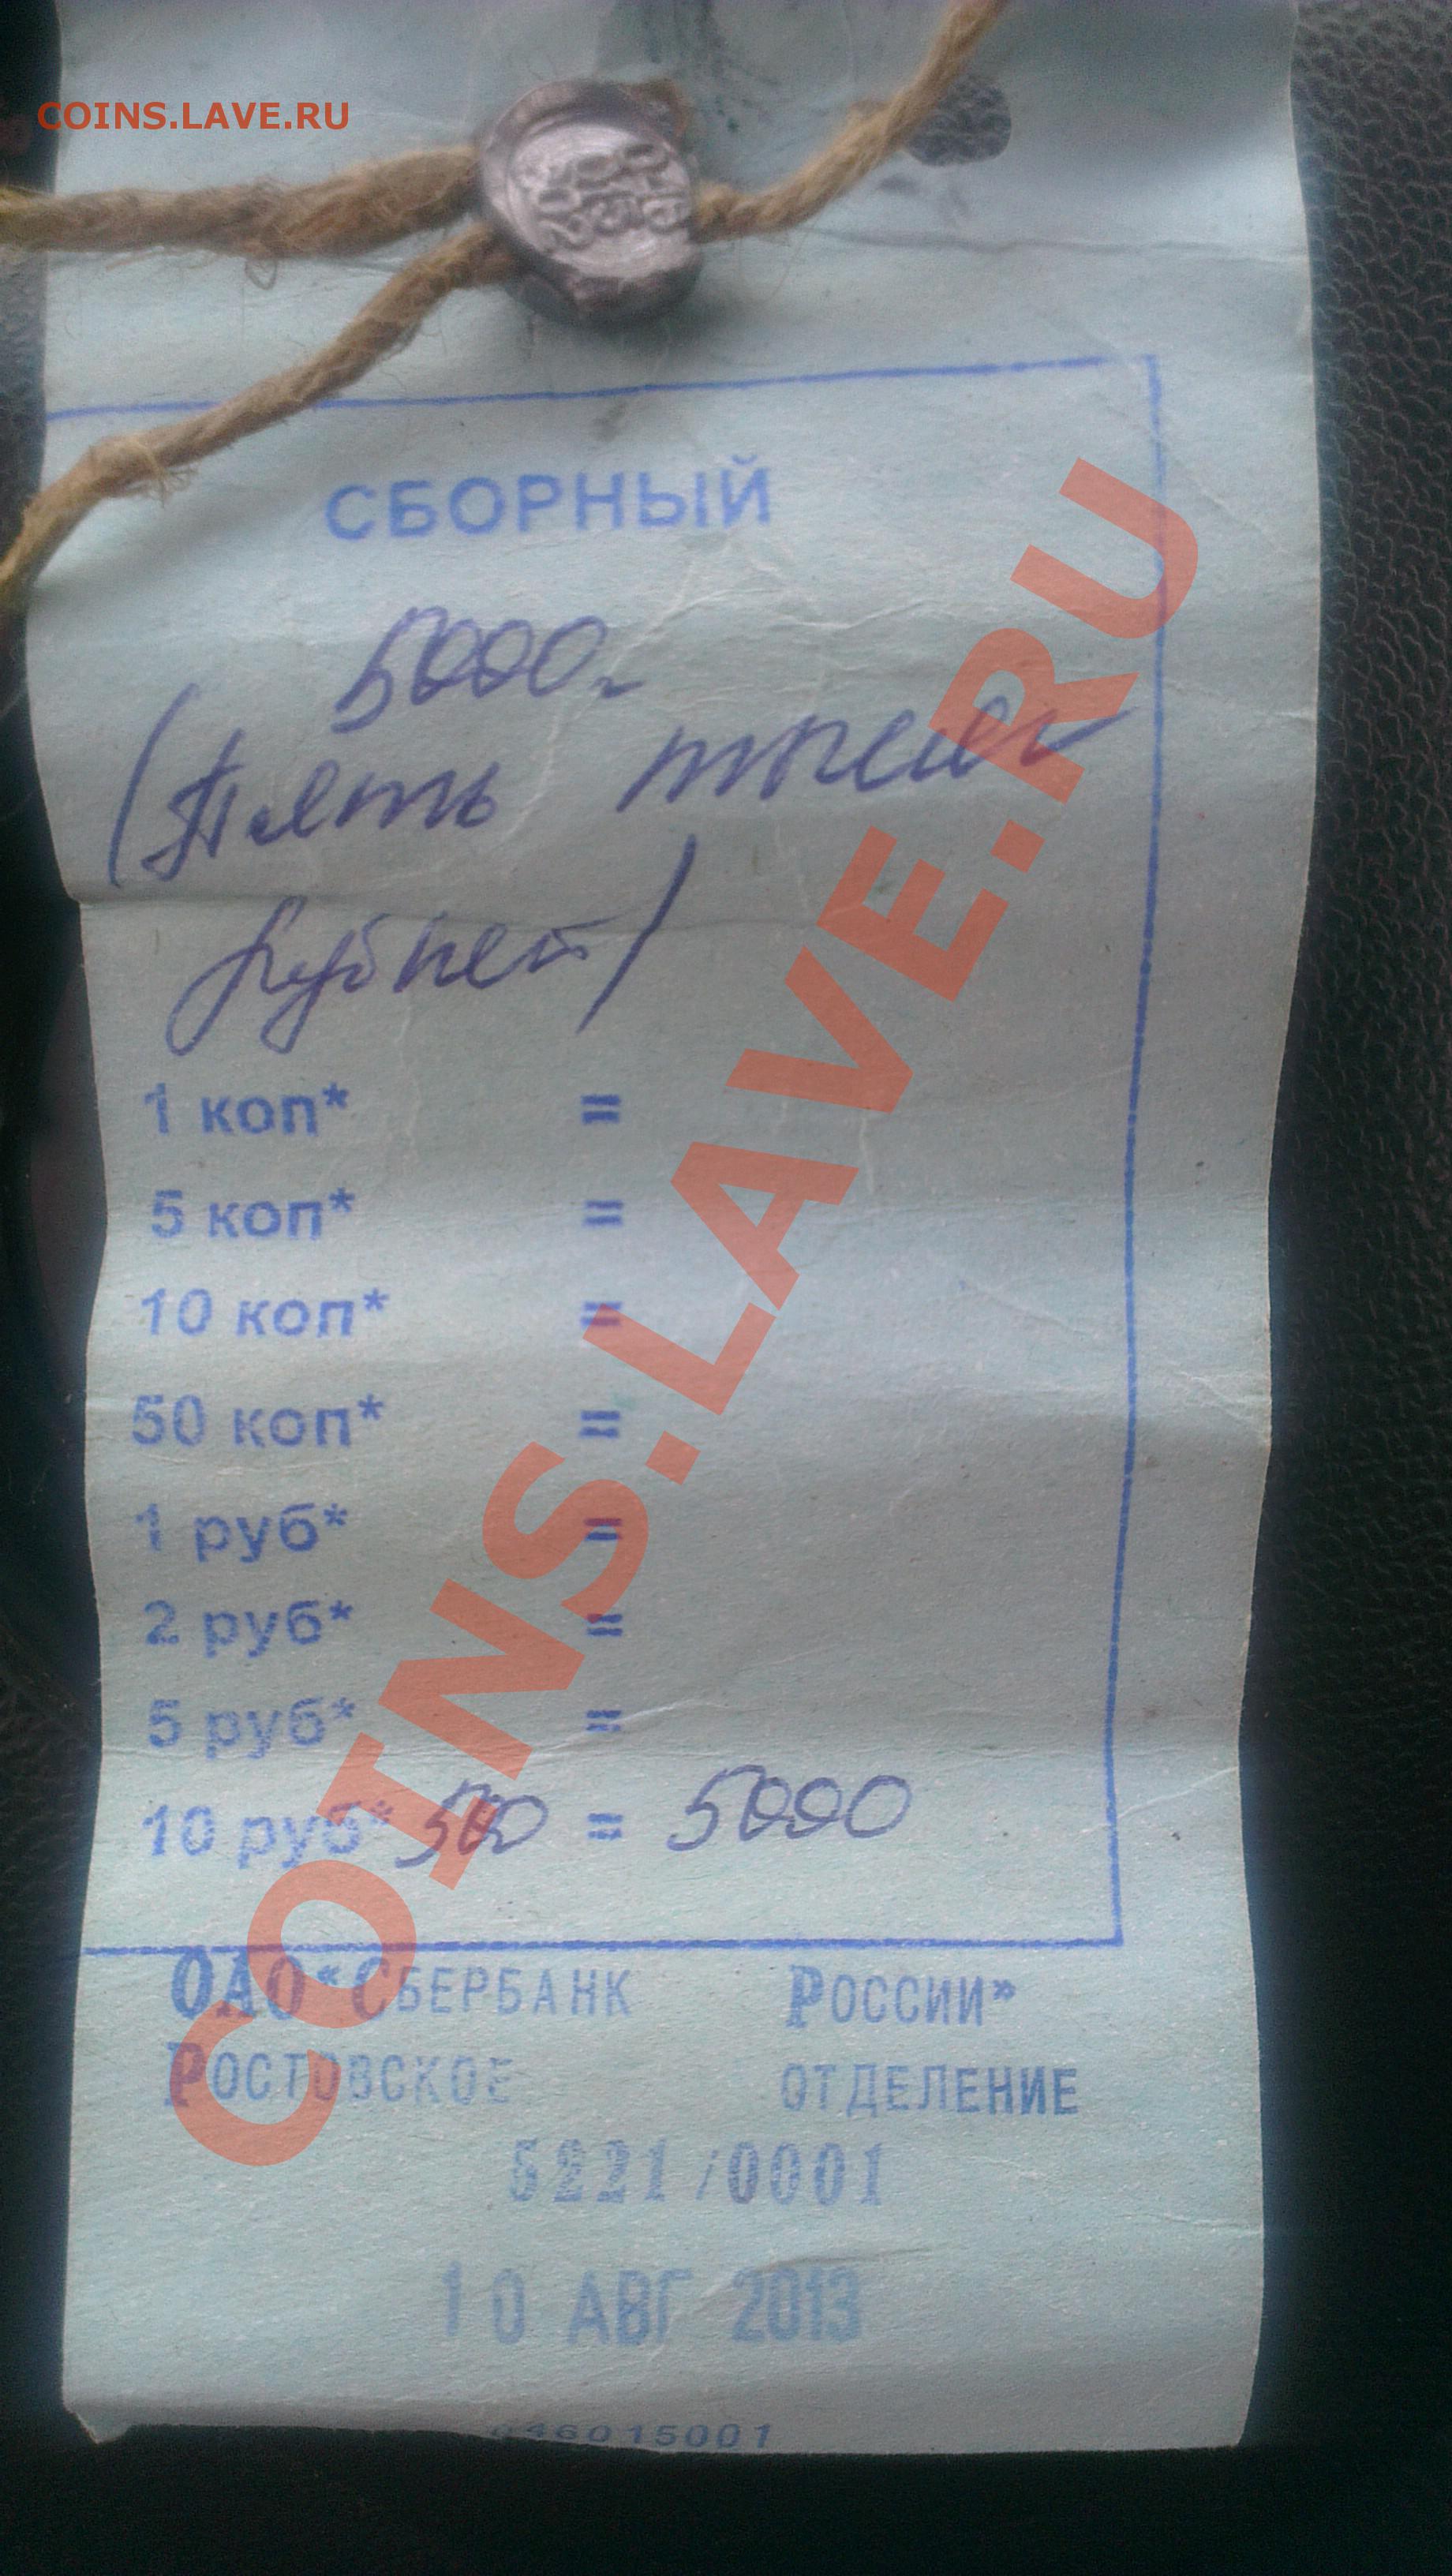 COINS.LAVE.RU
СБОРНЫЙ
5000
(Пять тысяч
рублей)
1 коп* =
5 коп* =
10 коп* =
50 коп* =
1 руб* =
2 руб* =
5 руб* =
10 руб* 500 = 5000
ОАО "СБЕРБАНК РОССИИ"
РОСТОВСКОЕ ОТДЕЛЕНИЕ
5221/0001
10 АВГ 2013
046015001
COINS.LAVE.RU